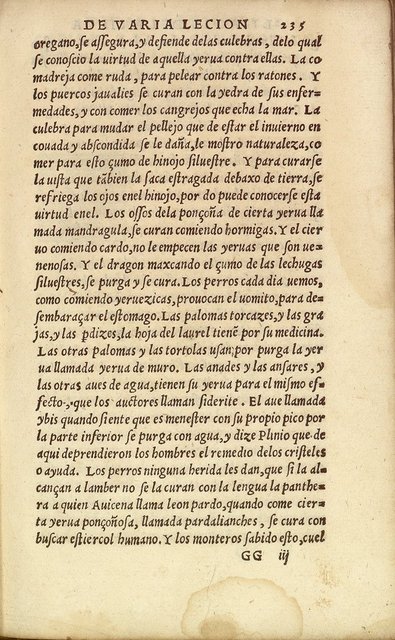 DE VARIA LECION 235
oregano, se assegura, y defiende delas culebras, delo qual
se conoscio la uirtud de aquella yerua contra ellas. La co
madreja come ruda, para pelear contra los ratones. Y
los puercos jaualies se curan con la yedra de sus enfer-
medades, y con comer los cangrejos que echa la mar. La
culebra para mudar el pellejo que de estar el inuierno en
couada y abscondida se le daña, le mostro naturaleza, co
mer para esto çumo de hinojo siluestre. Y para curarse
la uista que tãbien la saca estragada debaxo de tierra, se
refriega los ojos enel hinojo, por do puede conocerse esta
uirtud enel. Los ossos dela ponçoña de cierta yerua lla
mada mandragula, se curan comiendo hormigas. Y el cier
uo comiendo cardo, no le empecen las yeruas que son ue-
nenosas. Y el dragon maxcando el çumo de las lechugas
siluestres, se purga y se cura. Los perros cada dia uemos,
como comiendo yeruezicas, prouocan el uomito, para de-
sembaraçar el estomago. Las palomas torcazes, y las gra
jas, y las pdizes, la hoja del laurel tienẽ por su medicina.
Las otras palomas y las tortolas usan por purga la yer
ua llamada yerua de muro. Las anades y las ansares, y
las otras aues de agua, tienen su yerua para el mismo ef-
fecto, que los auctores llaman siderite. El aue llamada
ybis quando siente que es menester con su propio pico por
la parte inferior se purga con agua, y dize Plinio que de
aqui deprendieron los hombres el remedio delos cristeles
o ayuda. Los perros ninguna herida les dan, que si la al-
cançan a lamber no se la curan con la lengua la panthe-
ra a quien Auicena llama leon pardo, quando come cier-
ta yerua ponçoñosa, llamada pardalianches, se cura con
buscar estiercol humano. Y los monteros sabido esto, cuel
GG iij